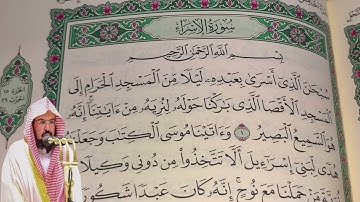 سُورَةُ الإِسْرَاءِ
بِسْمِ اللَّهِ الرَّحْمَٰنِ الرَّحِيمِ
سُبْحَٰنَ الَّذِي أَسْرَىٰ بِعَبْدِهِ لَيْلًا مِّنَ الْمَسْجِدِ الْحَرَامِ إِلَى
الْمَسْجِدِ الْأَقْصَا الَّذِي بَٰرَكْنَا حَوْلَهُ لِنُرِيَهُ مِنْ ءَايَٰتِنَا إِنَّهُ
هُوَ السَّمِيعُ الْبَصِيرُ ١ وَءَاتَيْنَا مُوسَى الْكِتَٰبَ وَجَعَلْنَٰهُ
هُدًى لِّبَنِي إِسْرَٰٓءِيلَ أَلَّا تَتَّخِذُوا مِن دُونِي وَكِيلًا
ذُرِّيَّةَ مَنْ حَمَلْنَا مَعَ نُوحٍ إِنَّهُ كَانَ عَبْدًا شَكُورًا